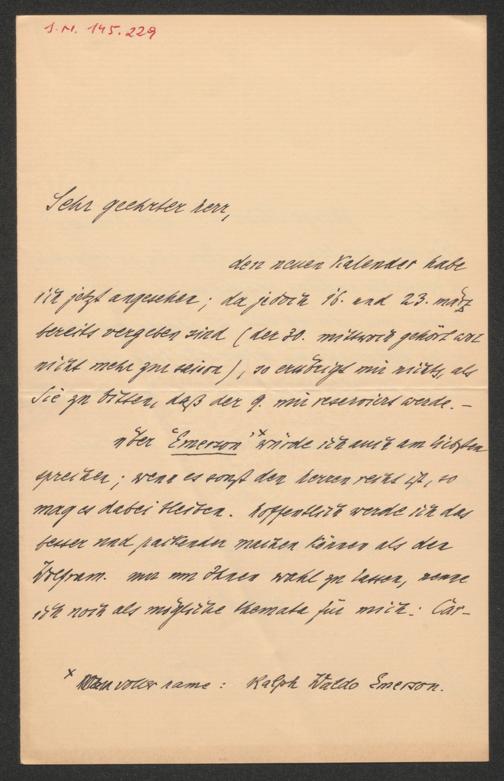 J.N. 145.229
Sehr geehrter herr,
den neuen Kalender habe
ich jetzt angesehen; da jedoch 16. und 23. märz
bereits vergeben sind (der 30. mittwoch gehört wol
nicht mehr zur saison), so erübrigt mir nichts, als
Sie zu bitten, daß der 9. mir reserviert werde. –
über 'Emerson' x würde ich auch am liebsten
sprechen; wenn es sonst den herren recht ist, so
mag es dabei bleiben. hoffentlich werde ich das
besser und packender machen können als den
Wolfram. um nun Ihnen wahl zu lassen, nenne
ich noch als mögliche themata für mich: Car-
x voller name: Ralph Waldo Emerson.